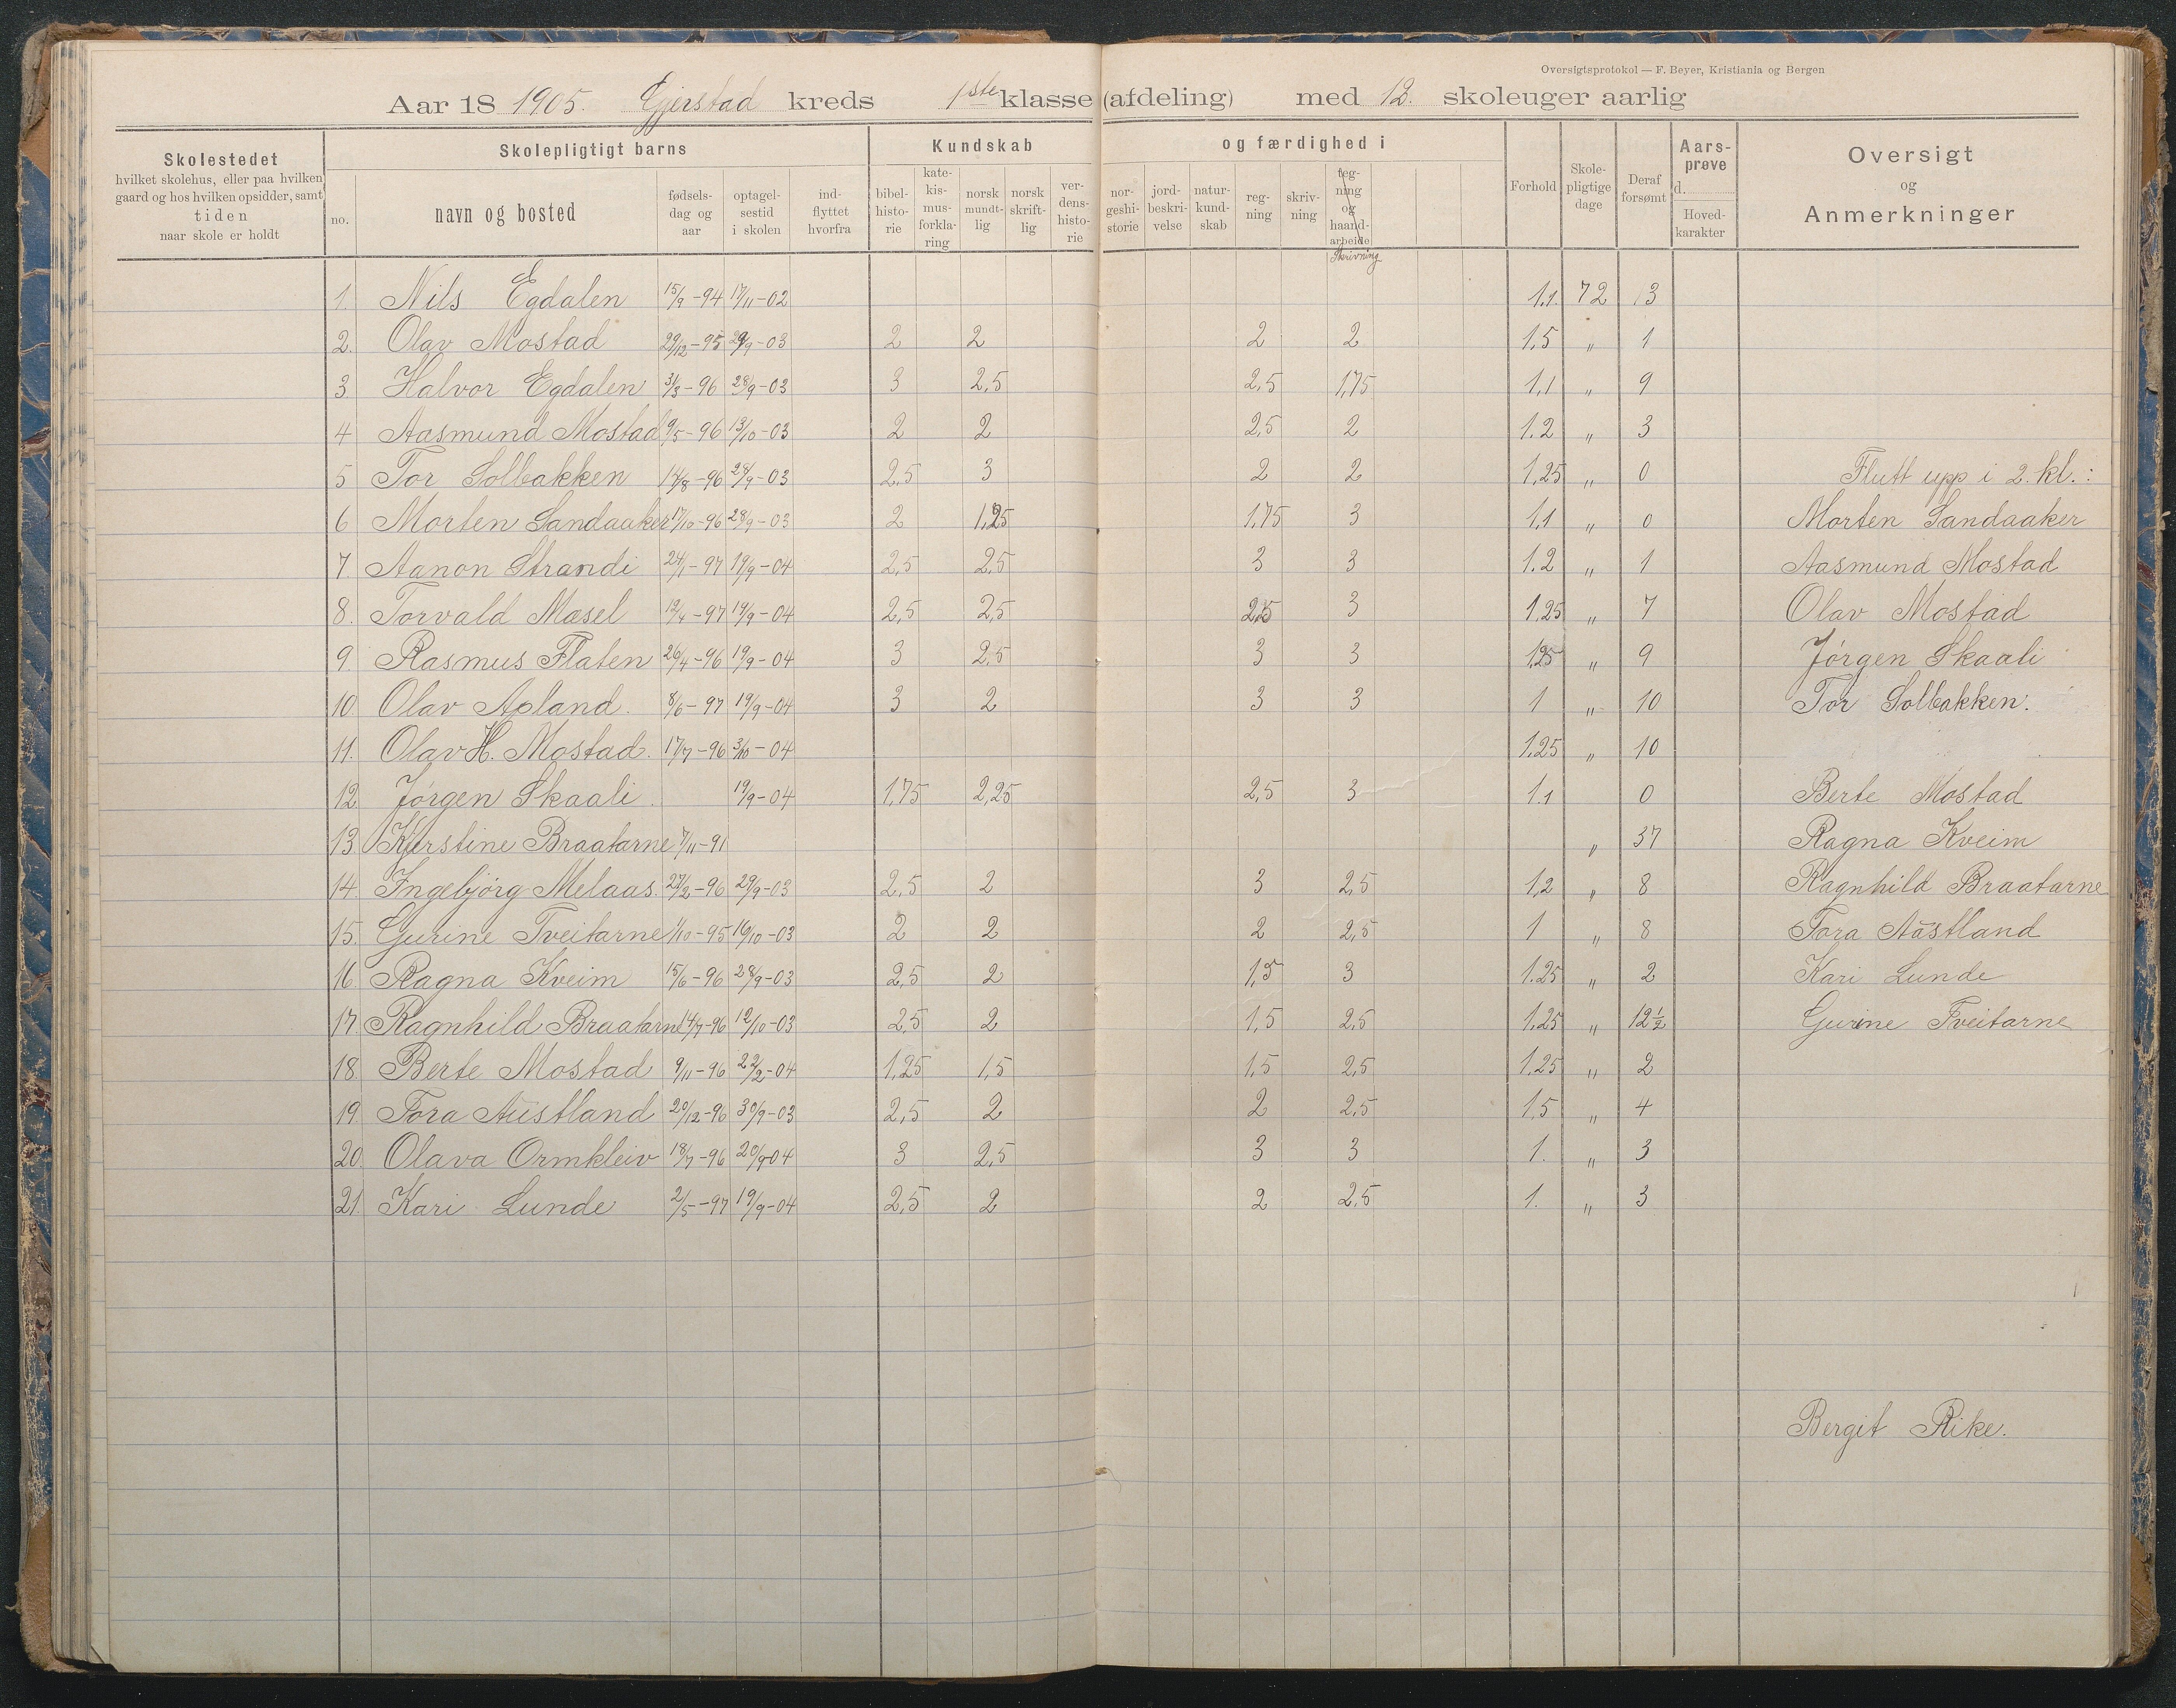 Oversigtsprotokol — F. Beyer, Kristiania og Bergen
Aar 18 1905. Gjerstad kreds 1ste klasse (afdeling) med 12. skoleuger aarlig
Skolestedet
hvilket skolehus, eller paa hvilken
gaard og hos hvilken opsidder, samt
tiden
naar skole er holdt
Skolepligtigt barns
no.
navn og bosted
fødsels-
dag og
aar
optagel-
sestid
i skolen
ind-
flyttet
hvorfra
Kundskab
bibel-
histo-
rie
kate-
kis-
mus-
forkla-
ring
norsk
mundt-
lig
norsk
skrift-
lig
ver-
dens-
histo-
rie
og færdighed i
nor-
geshi-
storie
jord-
beskri-
velse
natur-
kund-
skab
reg-
ning
skriv-
ning
teg-
ning
og
haand-
arbeide
Skrivning
Forhold
Skole-
pligtige
dage
Deraf
forsømt
Aars-
prøve
d.
Hoved-
karakter
Oversigt
og
Anmerkninger
1. Nils Egdalen 15/9-94 17/11-02 1.1. 72 13
2. Olav Mostad 29/12-95 29/9-03 2 2 2 2 1.5 " 1
3. Halvor Egdalen 3/3-96 28/9-03 3 2,5 2,5 1,75 1,1 " 9
4 Aasmund Mostad 9/5-96 13/10-03 2 2 2,5 2 1.2 " 3
5 Tor Solbakken 14/8-96 28/9-03 2,5 3 2 2 1,25 " 0 Flutt upp i 2. kl.:
6 Morten Sandaaker 17/10-96 28/9-03 2 1,25 1,75 3 1,1 " 0 Morten Sandaaker
7. Aanon Strandi 24/1-97 19/9-04 2,5 2,5 3 3 1.2 " 1 Aasmund Mostad
8. Torvald Mæsel 12/4-97 19/9-04 2,5 2,5 2,25 3 1.25 " 7 Olav Mostad
9. Rasmus Flaten 26/4-96 19/9-04 3 2,5 3 3 1,25 " 9 Jørgen Skaali
10. Olav Apland. 8/6-97 19/9-04 3 2 3 3 1 " 10 Tor Solbakken.
11. Olav H. Mostad. 17/7-96 3/10-04 1.25 " 10
12. Jørgen Skaali. 19/9-04 1,75 2,25 2,5 3 1.1 0 Berte Mostad
13. Kjerstine Braatarne 7/11-91 " 37 Ragna Kveim
14. Ingebjørg Melaas. 27/2-96 29/9-03 2,5 2 3 2,5 1,2 " 8 Ragnhild Braatarne
15. Gurine Tveitarne 1/10-95 16/10-03 2 2 2 2,5 1 " 8 Tora Aastland
16. Ragna Kveim 15/6-96 28/9-03 2,5 2 1,5 3 1.25 " 2 Kari Lunde
17. Ragnhild Braatarne 14/7-96 12/10-03 2,5 2 1,5 2,5 1,25 " 12 1/2 Gurine Tveitarne
18. Berte Mostad 9/11-96 22/2-04 1,25 1,5 1,5 2,5 1.25 " 2
19. Tora Austland 20/12-96 30/9-03 2,5 2 2 2,5 1.5 " 4
20. Olava Ormkleiv 18/7-96 20/9-04 3 2,5 3 3 1. " 3
21. Kari Lunde 2/5-97 19/9-04 2,5 2 2 2,5 1. " 3
Bergit Rike.